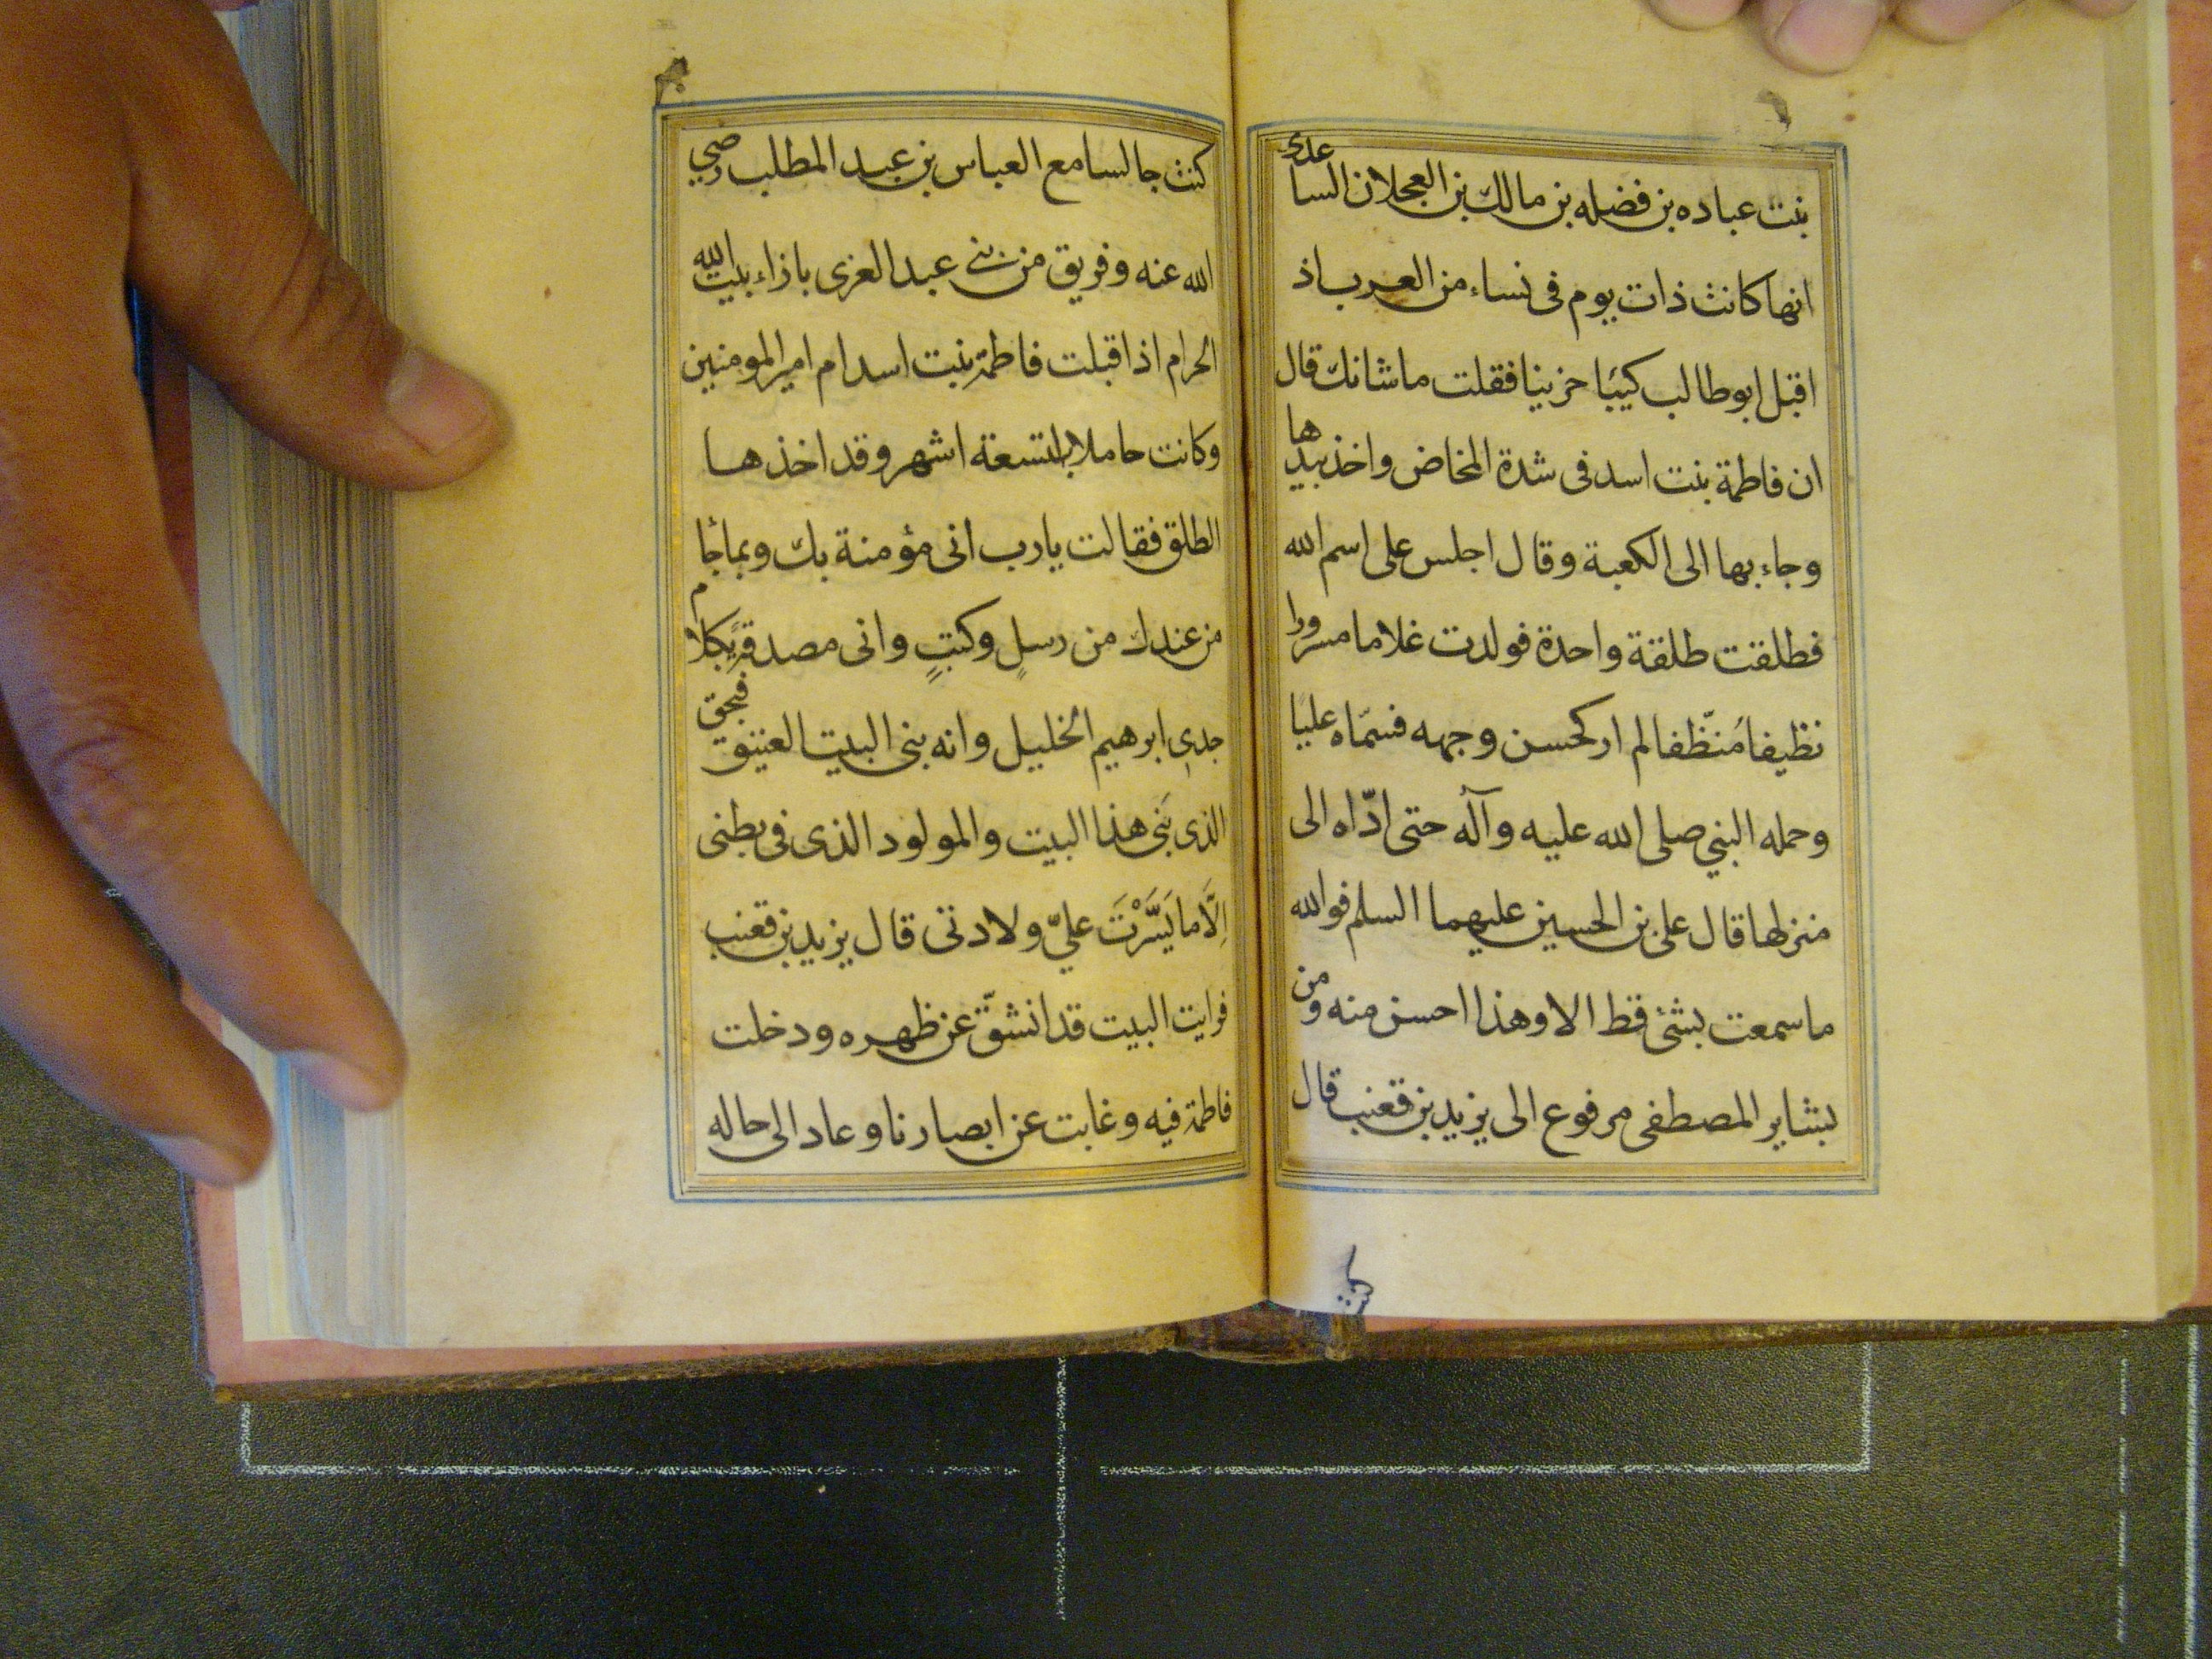 بنت عباده بن فضله بن مالك بن العجلان الساعدى
انها كانت ذات يوم فى نساء من العرب اذ
اقبل ابوطالب كيبًا حزينا فقلت ما شانك قال
ان فاطمة بنت اسد فى شدة المخاض واخذ بيدها
وجاء بها الى الكعبة وقال اجلس على اسم الله
فطلقت طلقة واحدة فولدت غلاما مسرورا
نظيفا مُنظّفا لم ار كحسن وجهه فسمّاه عليّا
وحمله النبي صلى الله عليه وآله حتى ادّاه الى
منزلها قال على بن الحسين عليهما السلم فوالله
ما سمعت بشئ قط الا وهذا احسن منه ومن
بشاير المصطفى مرفوع الى يزيد بن قعنب قال
كنت
كنت جالسا مع العباس بن عبد المطلب رضي
الله عنه وفريق من بنى عبد العزى بازاء بيت الله
الحرام اذ اقبلت فاطمة بنت اسد ام امير المومنين
وكانت حاملا به لتسعة اشهر وقد اخذها
الطلق فقالت يا رب انى مؤمنة بك وبما جاء
من عندك من رسلٍ وكتبٍ وانى مصدقة بكلام
جدى ابرهيم الخليل وانه بنى البيت العتيق فبحق
الذى بَنى هذا البيت والمولود الذى فى بطنى
اِلَّا ما يَسَّرْتَ عليّ ولادتى قال يزيد بن قعنب
فرايت البيت قد انشقّ عن ظهره ودخلت
فاطمة فيه وغابت عن ابصارنا وعاد الى حاله